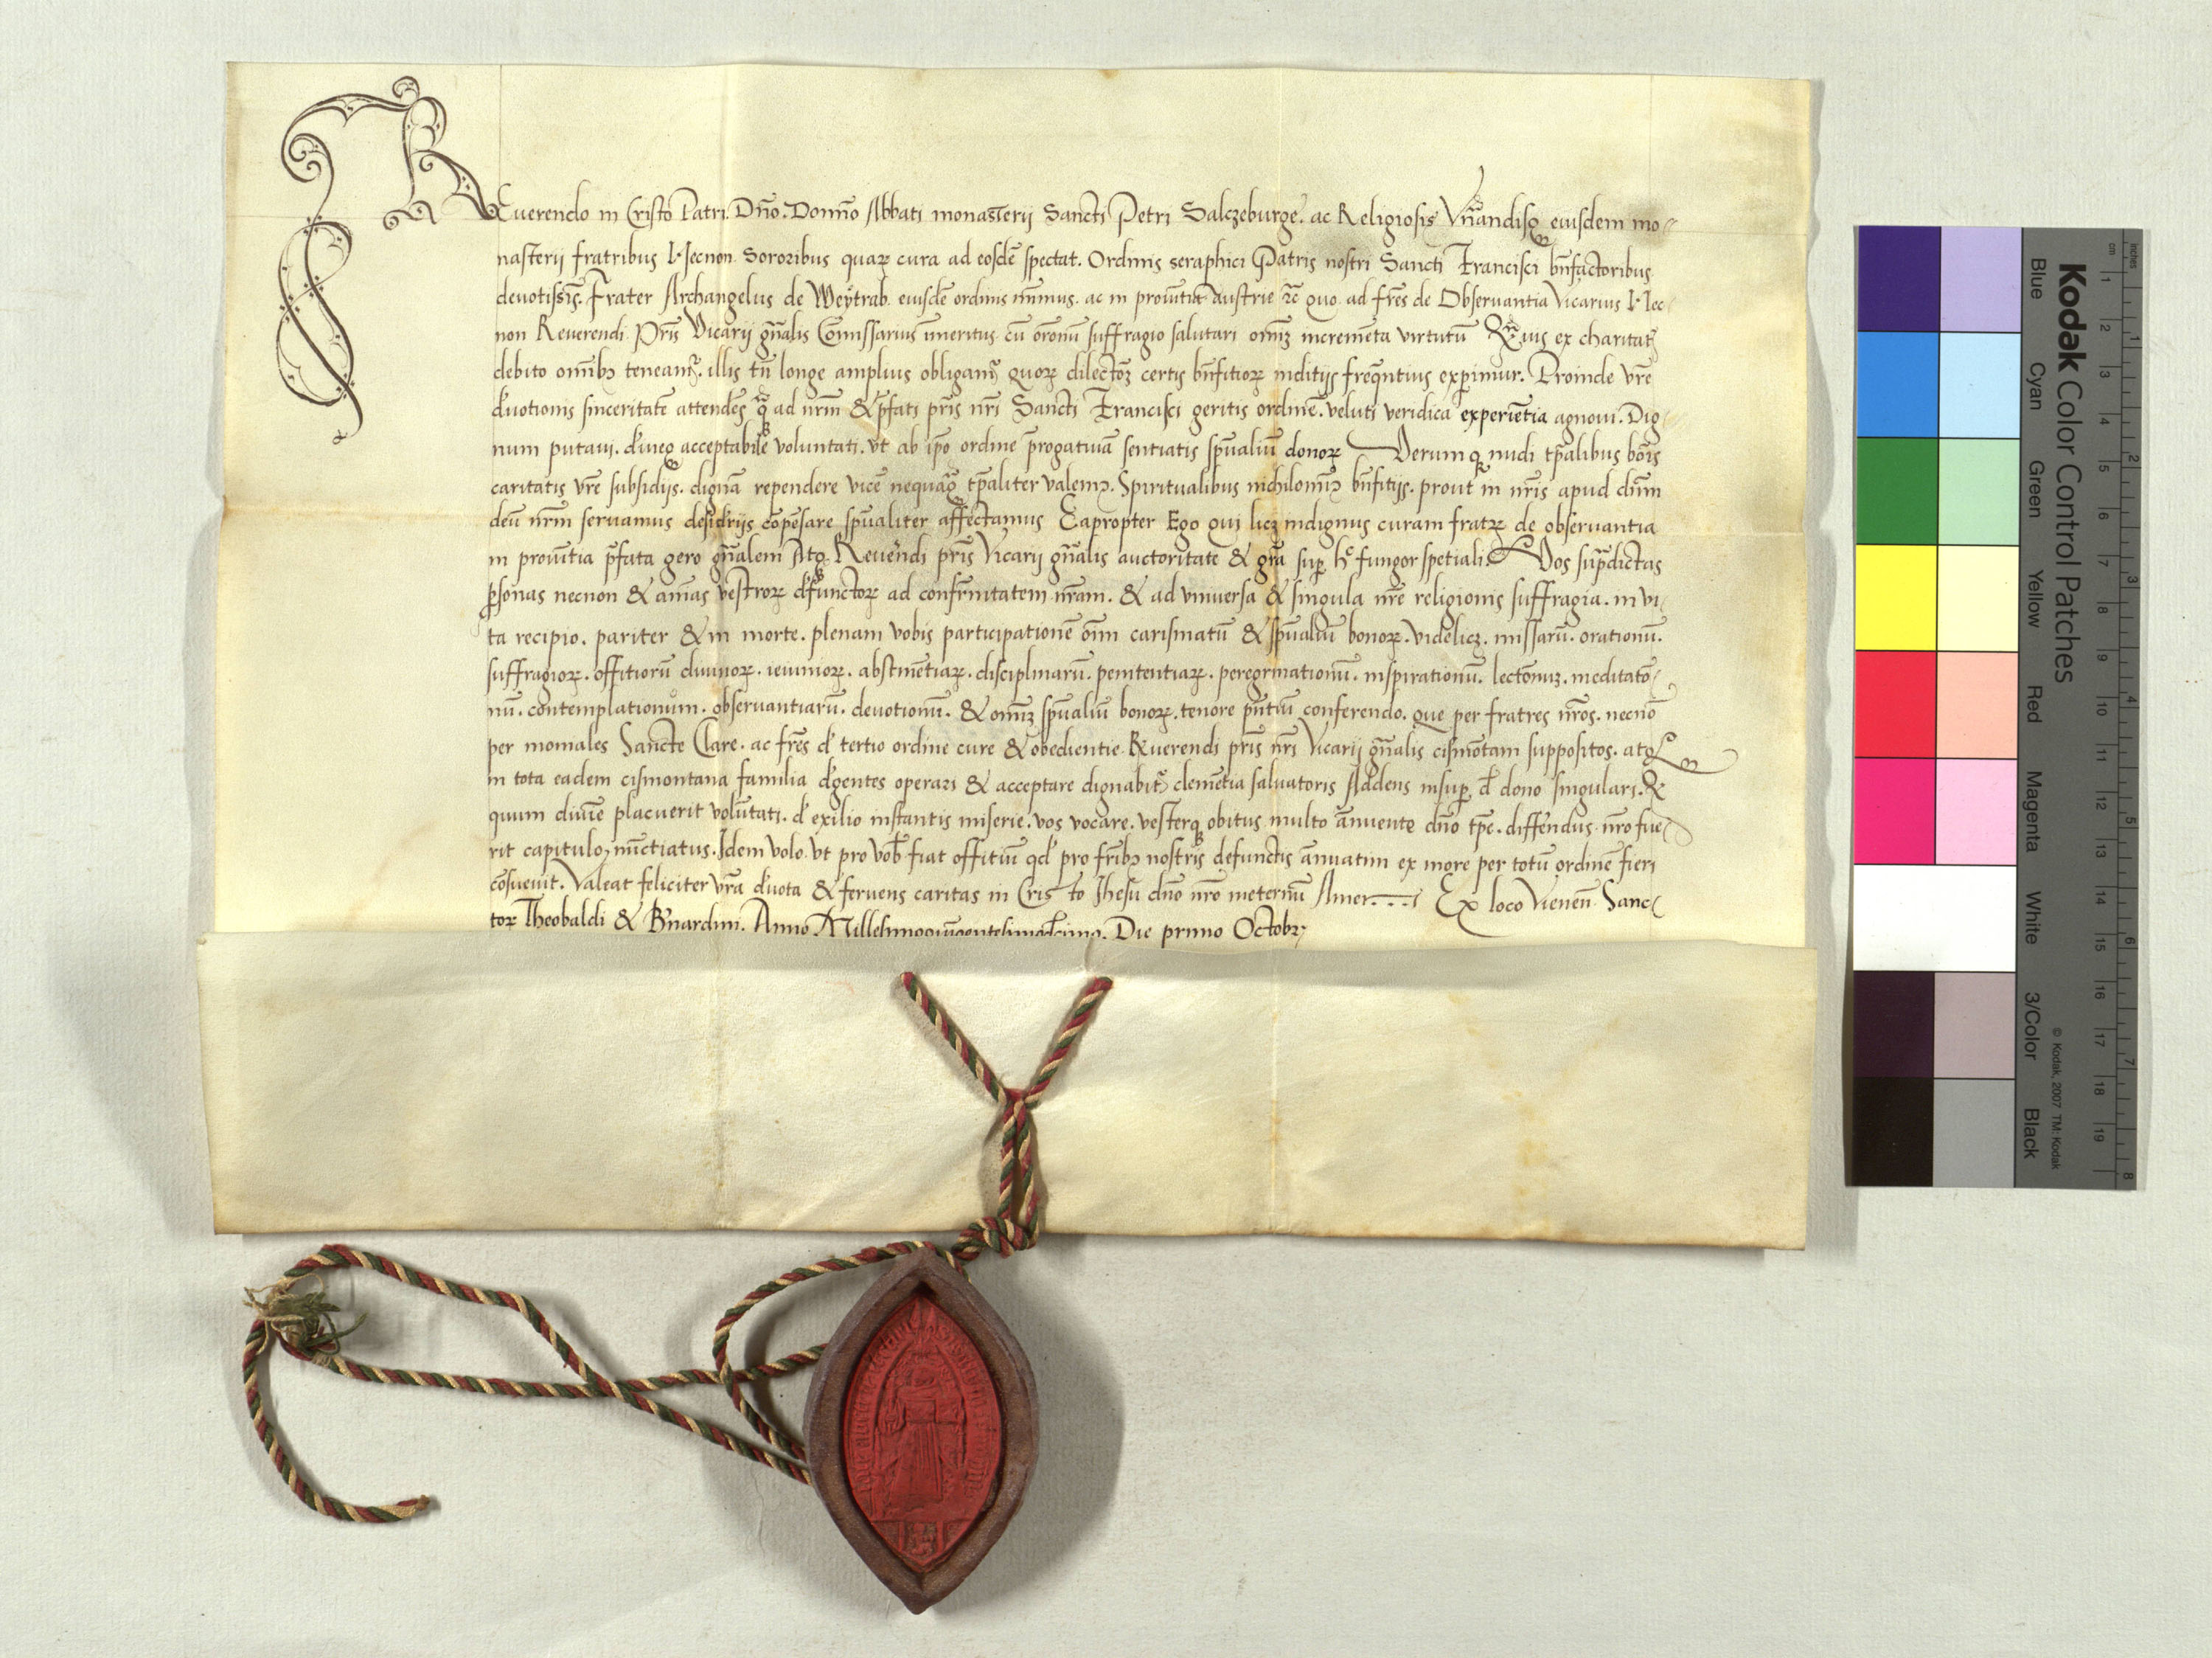 REuerendo in Cristo Patri. Dño. Domño Abbati monasterii Sancti Petri Salczeburge. ac Religiosis Vñandisq eiusdem mo-
nasterii fratribus Necnon Sororibus quaꝝ cura ad eosdē spectat. Ordinis seraphici Patris nostri Sancti Francisci bñfactoribus
deuotissīs. Frater Archangelus de Weytrab. eiusdē ordinis minimus. ac in prouītia austrie ꝛc̄ quo. ad fr̄es de Observantia Vicarius Nec-
non Reuerendi Pr̄is Vicarij gñalis Comissarius imeritus. cū or̄onū suffragio salutari om̄iꝫ incremēta virtutū ius ex charitatꝭ
debito omībꝫ teneamꝰ. illis tñ longe amplius obligamꝰ quoꝝ dilectōꝫ certis bñfitioꝝ inditijs freq̄ntius experimur. Proinde vr̄e
d̓uotionis sinceritatē attendēs q̄ ad nr̄m & p̄fati pr̄is nr̄i Sancti Francisci geritis ordinē. veluti veridica experiētia agnoui. Dig-
num putaui. d̓ineq acceptabile voluntati. vt ab ip̄o ordine p̄rogatiuā sentiatis sp̄ualiū donoꝝ Verumq nudi tp̄alibus bōis
caritatis vr̄e subsidijs. dignā rependere vicē nequaq̄ tp̄aliter valemꝰ. Spiritualibus nichilomīꝰ bñfitijs. prout in nr̄is apud dñm
deū nr̄m seruamus desid̓rijs cōpēsare sp̄ualiter affectamus Eapropter Ego qui licꝫ indignus curam fratꝝ de obseruantia
in prouītia p̄fata gero gñalem Atq Reuēndi pr̄is Vicarij gñalis auctoritate & gr̄a sup̱ hº fungor spetiali. Vos sup̄dictas
ꝑsonas necnon & aīas vestroꝝ d̓functoꝝ ad confr̄nitatem nr̄am. & ad vniuersa & singula nr̄e religionis suffragia. in vi-
ta recipio. pariter & in morte. plenam vobis participationē oīm carismatū & sp̄ualiū bonoꝝ. videlicꝫ. missarū. orationū.
suffragioꝝ. offitiorū diuinoꝝ. ieiunioꝝ. abstinētiaꝝ. disciplinarū. penitentiaꝝ. peregrinationū. inspirationū. lectōnuꝫ. meditatō-
nū. contemplationum. obseruantiarū. deuotionū. & om̄iꝫ sp̄ualiū bonoꝝ. tenore p̄ntiū conferendo. que per fratres nr̄os. necnō
per moniales Sancte Clare. ac fr̄es d̓ tertio ordine cure & obedientie Reuerendi pr̄is nr̄i Vicarij gñalis cismōtam suppositos. atq
in tota eadem cismontana familia d̓gentes operari & acceptare dignabitꝰ clemētia saluatoris Addens insup̱ d̓ dono singulari. &
quum diuīe placuerit volūtati. d̓ exilio instantis miserie. vos vocare. vesterq obitus multo āñuente dño tp̄e. differendus nr̄o fue-
rit capitulo nūctiatus. Idem volo vt pro vob̄ fiat offitiū qd̓ pro fr̄ibꝫ nostris defunctis annuatim ex more per totū ordinē fieri
cōsueuit. Valeat feliciter vr̄a d̓uota & feruens caritas in Cristo Ihesu dño nr̄o ineternū Amen Ex loco Vienen̄ Sanc-
toꝝ Theobaldi & Bnardini. Anno Millesimoquīgentesimodecimo. Die primo Octobrꝭ
Kodak Color Control Patches
Blue Cyan Green Yellow Red Magenta White 3/Color Black
© Kodak, 2007 TM: Kodak
cm 1 2 3 4 5 6 7 8 9 10 11 12 13 14 15 16 17 18 19
inches 1 2 3 4 5 6 7 8